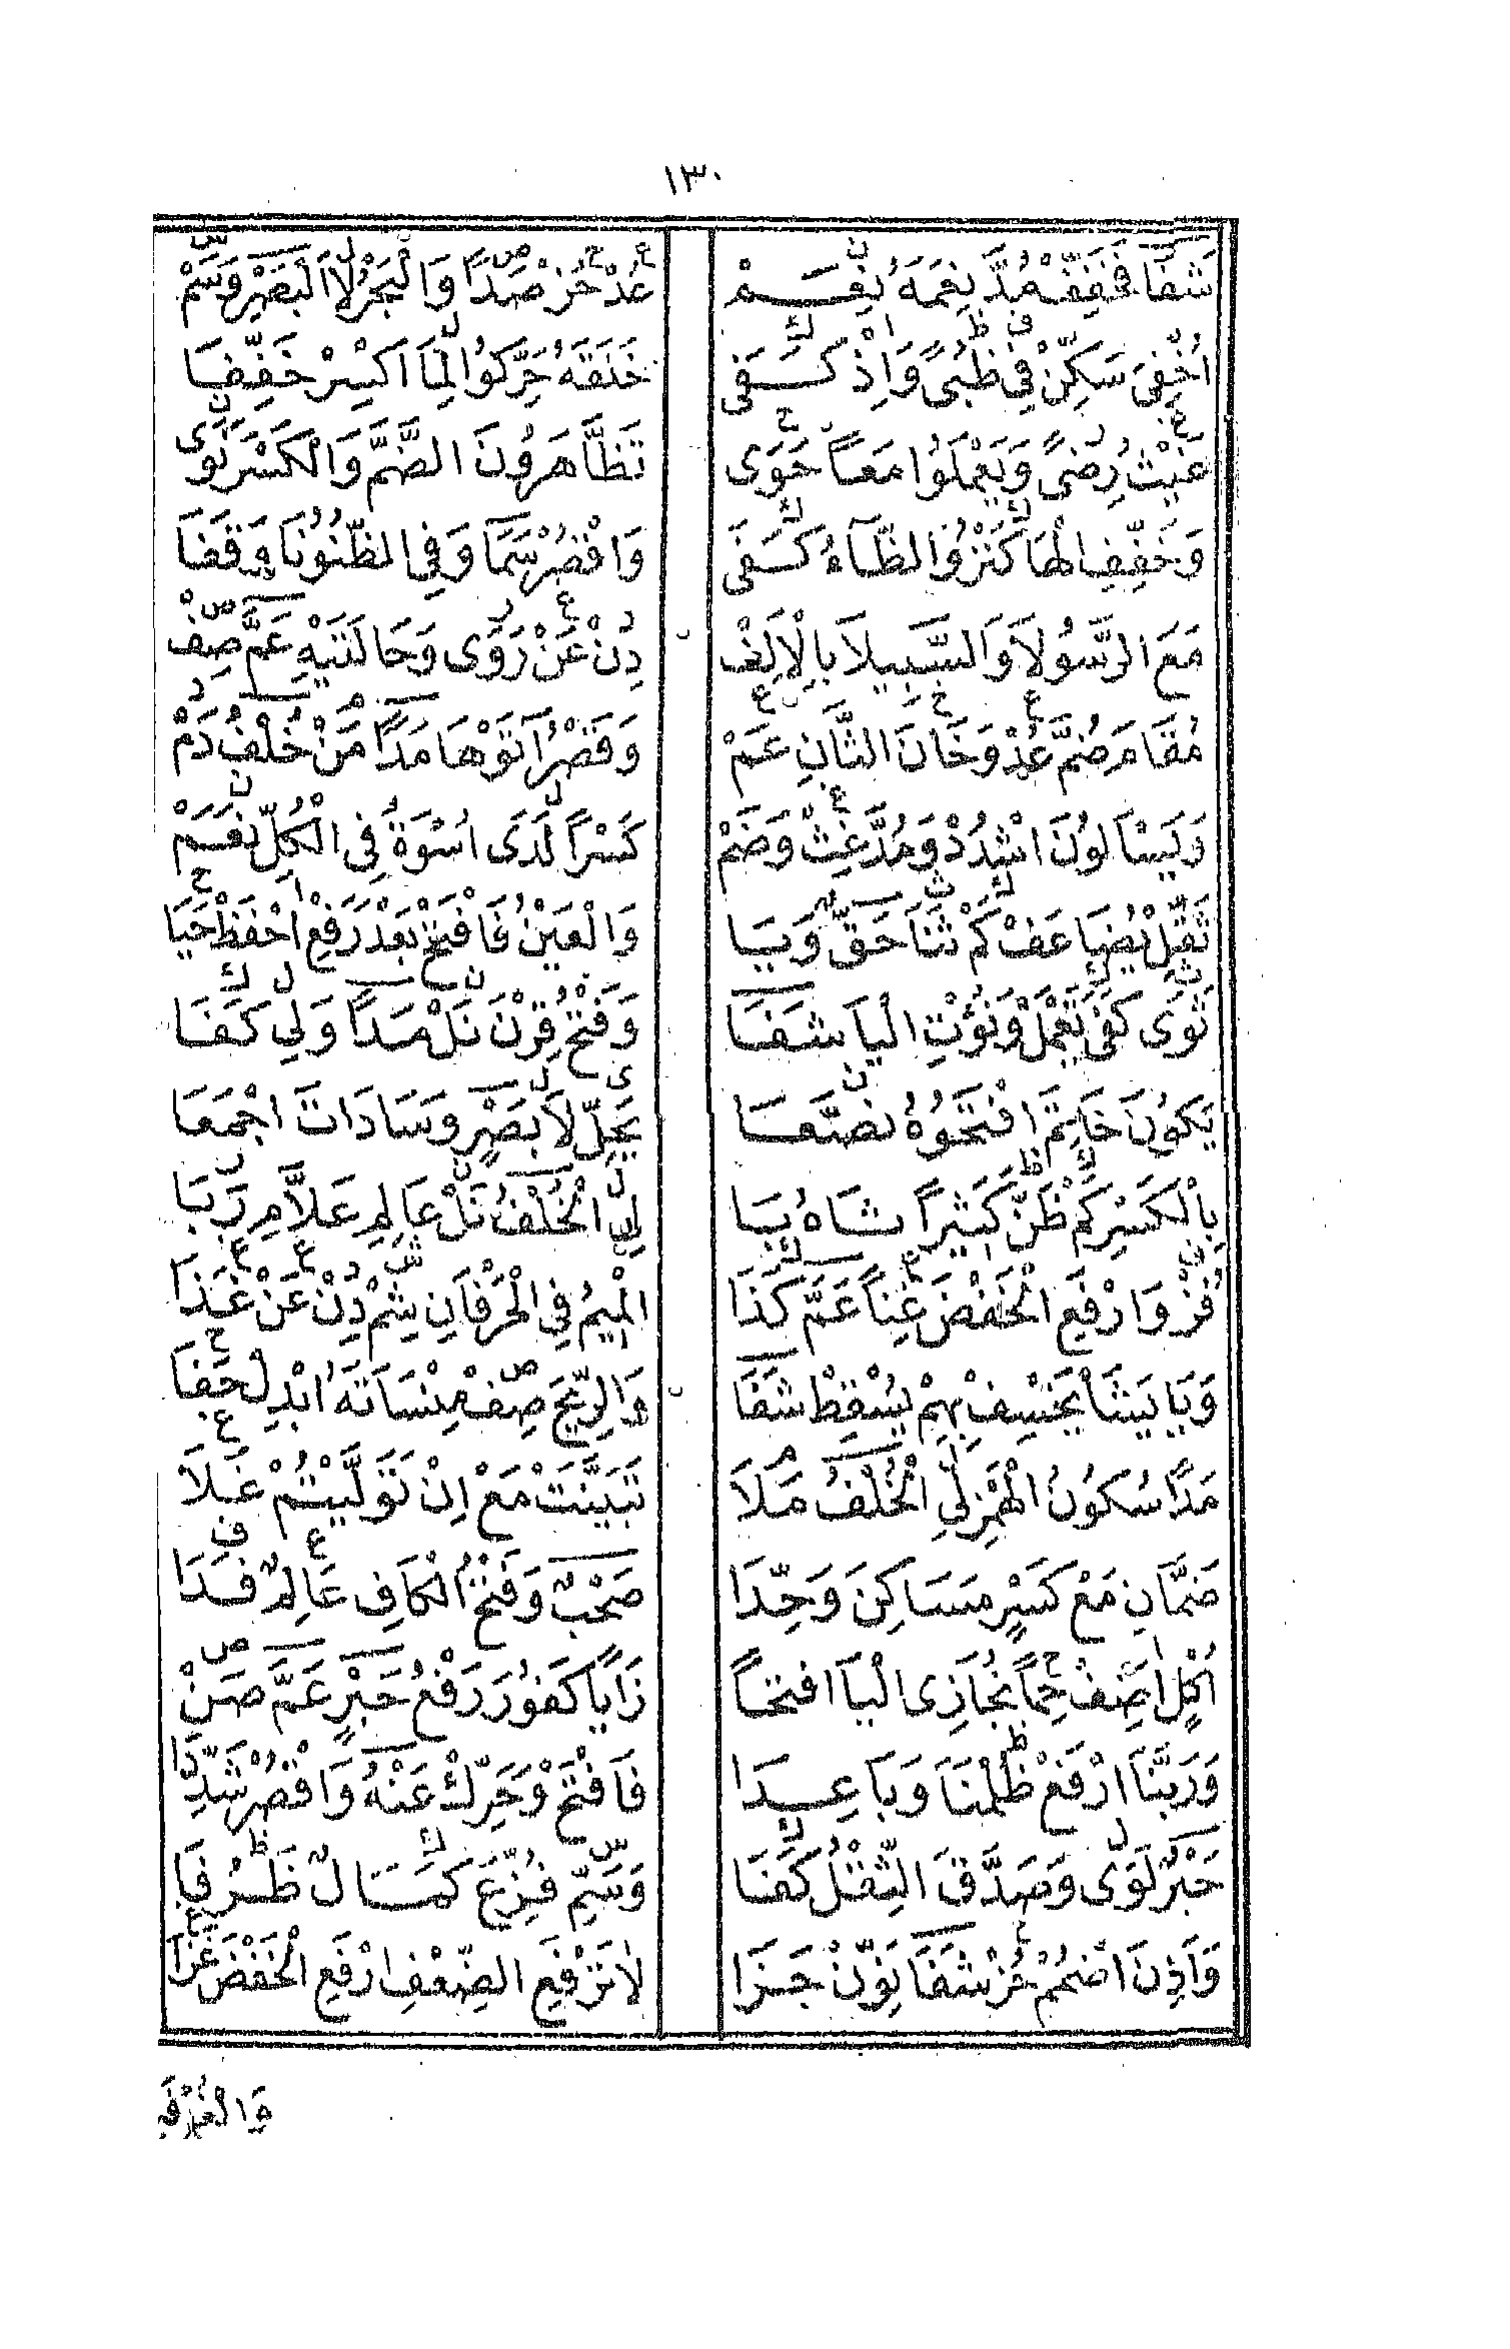 ١٣٠
شَفَا فَخَفِّفْ مُدَّ نِعْمَةً نُعِمْ عُدْ حُزْ صَدًا وَالْبَحْرُ لَا الْبَصْرِ وَسَمْ
أُخْفِيَ سَكِّنْ فِي ظُبًى وَإِذْ كَفَى خَلَقَهُ حَرِّكْ لِمَا اكْسِرْ خَفِّفَا
غَيْثٌ رِضًى وَيَعْمَلُوا مَعًا حَوَى تَظَّاهَرُونَ الضَّمَّ وَالْكَسْرَ نَوَى
وَخَفِّفِ الْهَا كَنْزُ وَالظَّاءُ كَفَى وَاقْصُرْ سَمَا وَفِي الظُّنُونَا وَقَفَا
مَعَ الرَّسُولَا وَالسَّبِيلَا بِالْأَلِفْ دِنْ عَنْ رَوَى وَحَالَتَيْهِ عَمَّ صِفْ
مُقَامَ ضُمَّ عُدْ وَخَانَ الثَّانِ عَمْ وَقَصْرُ آتَوْهَا مَدًا مَنْ خُلْفُ دَمْ
وَيَسْأَلُونَ اشْدُدْ وَمُدَّ غِثْ وَضَمْ كَسْرًا لَدَى أُسْوَةٌ فِي الْكُلِّ نَعَمْ
ثَقِّلْ يُضَاعَفْ كَمْ ثَنَا حَقٌّ وَيَا وَالْعَيْنَ فَافْتَحْ بَعْدُ رَفْعَ احْفَظْ حَيَا
ثَوَى كَفَى تَعْمَلْ وَتُؤْتِ الْيَا شَفَا وَفَتْحُ قِرْنَ نَلْ مَدًا وَلِي كَفَا
يَكُونَ خَاتِمَ افْتَحُوهُ نُصِّعَا يَحِلُّ لَا بَصْرٍ وَسَادَاتَ اجْمَعَا
بِالْكَسْرِ كَمْ ظَنَّ كَثِيرًا ثَاهُ بَا لِي الْخُلْفُ نَلْ عَالِمِ عَلَّامِ رَبَا
فُزْ وَارْفَعِ الْخَفْضَ غِنًا عَمَّ كَذَا أَلِيمٌ فِي الْحَرْفَانِ شِمْ دِنْ عَنْ غَذَا
وَيَا يَشَأْ يَخْسِفْ بِهِمْ يُسْقِطْ شَفَا وَالرِّيحَ صِفْ مِنْسَأَتَهُ أَبْدِلْ حَفَا
مَدًا سُكُونُ الْهَمْزِ لِي الْخُلْفُ مَلَا تَبَيَّنَتْ مَعْ إِنْ تَوَلَّيْتُمْ غَلَا
ضَمَّانِ مَعْ كَسْرٍ مَسَاكِنَ وَحِّدَا صَحْبٌ وَفَتْحُ الْكَافِ عَالِمٌ فَدَا
أُكْلٍ أَضِفْ حِمًا نُجَازِي الْيَا افْتَحًا زَايًا كَفُورَ رَفْعُ حَبْرٍ عَمَّ صَنْ
وَرَبَّنَا ارْفَعْ ظُلْمَنَا وَبَاعِدَا فَافْتَحْ وَحَرِّكْ عَنْهُ وَاقْصُرْ شَدِّدَا
حَبْرٌ لَوَى وَصَدَّقَ الثِّقْلُ كَفَا وَسَمِّ فُزِّعَ كَمَالٌ ظَرُفَا
وَأُذِنَ اضْمُمْ حُزْ شَفَا نَوِّنْ جَزَا لَا تَرْفَعِ الضِّعْفِ ارْفَعِ الْخَفْضَ غَزَا
وَالْغُرْفَةِ